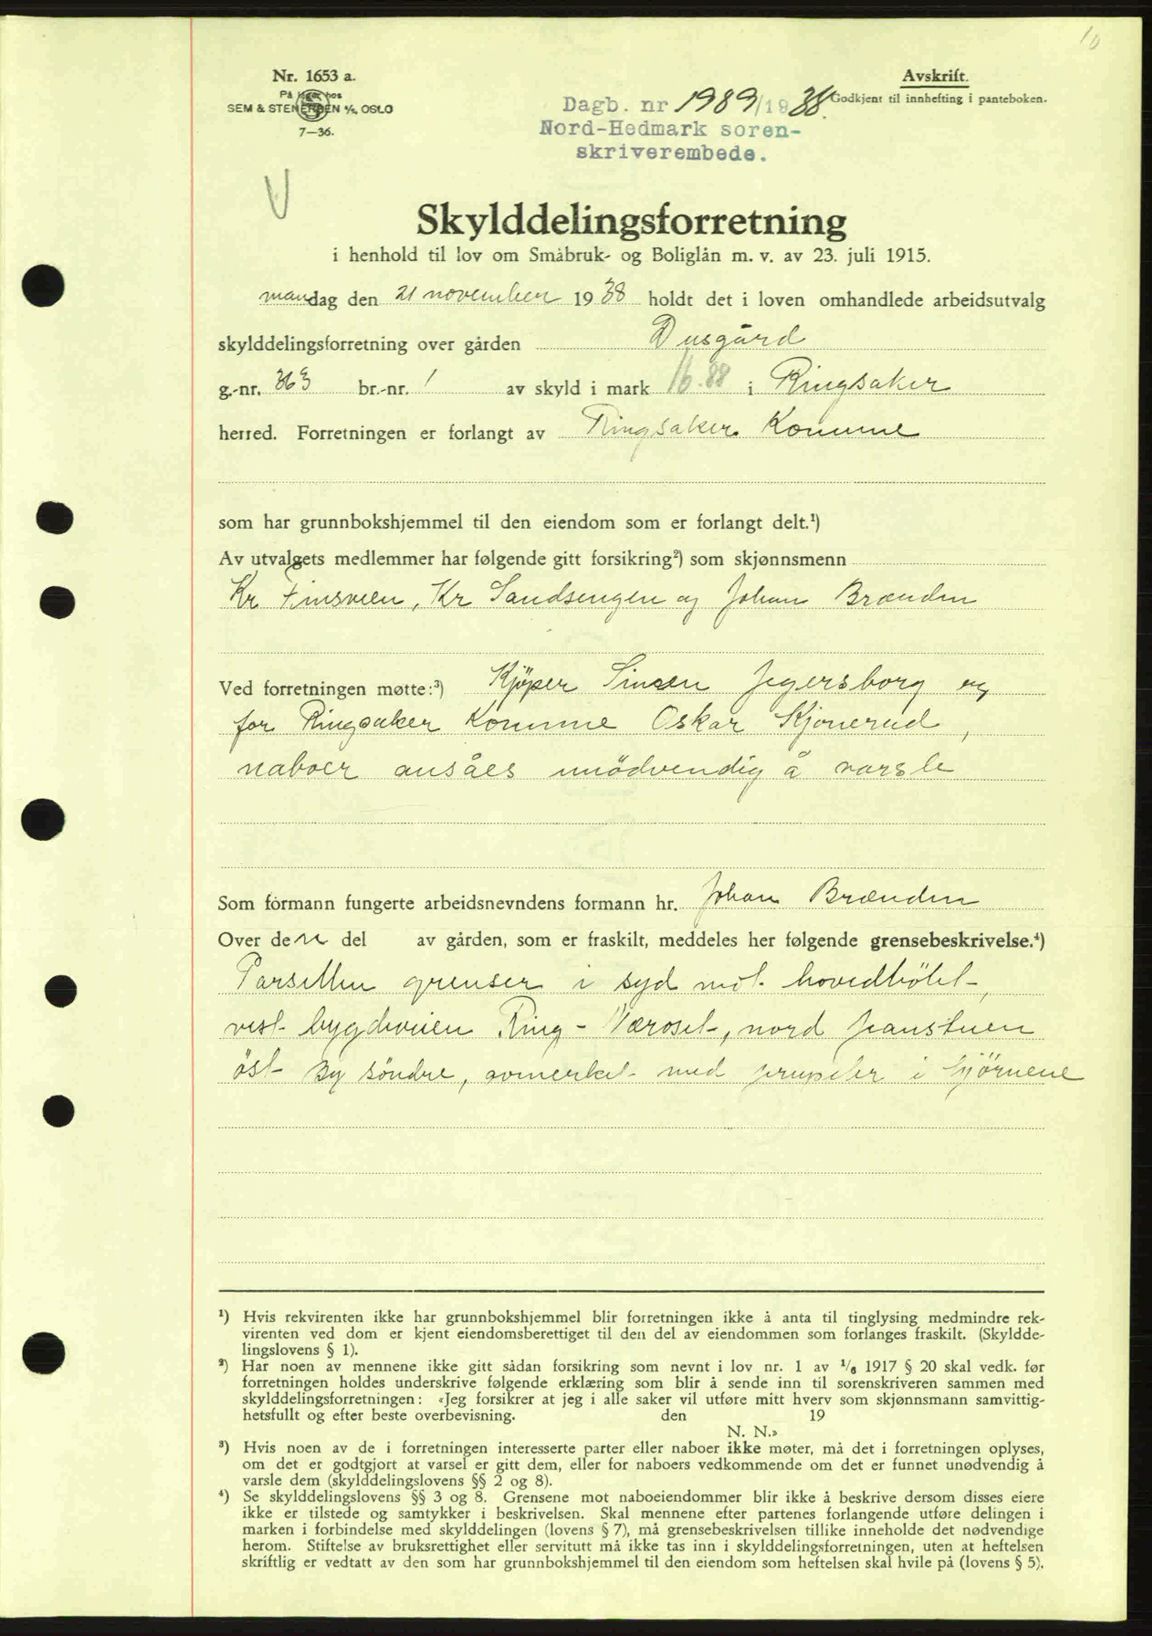 10
Nr. 1653 a.
På lager hos
SEM & STENERSEN A/S, OSLO
7—36.
Avskrift.
Godkjent til innhefting i panteboken.
Dagb. nr 1989/1938.
Nord-Hedmark soren-
skriverembede.
Skylddelingsforretning
i henhold til lov om Småbruk- og Boliglån m. v. av 23. juli 1915.
mandag den 21 november 1938 holdt det i loven omhandlede arbeidsutvalg
skylddelingsforretning over gården Dusgård
g.-nr. 363 br.-nr. 1 av skyld i mark 16.88 i Ringsaker
herred. Forretningen er forlangt av Ringsaker Komune
som har grunnbokshjemmel til den eiendom som er forlangt delt.¹)
Av utvalgets medlemmer har følgende gitt forsikring²) som skjønnsmenn
Kr Finsveen, Kr Sandsengen og Johan Brænden
Ved forretningen møtte:³) Kjöper Simen Jegersborg og
for Ringsaker Komune Oskar Skjonerud,
naboer ansåes unödvendig å varsle
Som formann fungerte arbeidsnevndens formann hr. Johan Brænden
Over den del av gården, som er fraskilt, meddeles her følgende grensebeskrivelse.⁴)
Parsellen grenser i syd mot hovedbölet,
vest bygdeveien Ring - Næroset, nord
öst By söndre, avmerket med i hjörnene
¹) Hvis rekvirenten ikke har grunnbokshjemmel blir forretningen ikke å anta til tinglysing medmindre rek-
virenten ved dom er kjent eiendomsberettiget til den del av eiendommen som forlanges fraskilt. (Skyldde-
lingslovens § 1).
²) Har noen av mennene ikke gitt sådan forsikring som nevnt i lov nr. 1 av 1/6 1917 § 20 skal vedk. før
forretningen holdes underskrive følgende erklæring som blir å sende inn til sorenskriveren sammen med
skylddelingsforretningen: «Jeg forsikrer at jeg i alle saker vil utføre mitt hverv som skjønnsmann samvittig-
hetsfullt og efter beste overbevisning. den 19
N. N.»
³) Hvis noen av de i forretningen interesserte parter eller naboer ikke møter, må det i forretningen oplyses,
om det er godtgjort at varsel er gitt dem, eller for naboers vedkommende om det er funnet unødvendig å
varsle dem (skylddelingslovens §§ 2 og 8).
⁴) Se skylddelingslovens §§ 3 og 8. Grensene mot naboeiendommer blir ikke å beskrive dersom disses eiere
ikke er tilstede og samtykker i beskrivelsen. Skal mennene efter partenes forlangende utføre delingen i
marken i forbindelse med skylddelingen (lovens § 7), må grensebeskrivelsen tillike inneholde det nødvendige
herom. Stiftelse av bruksrettighet eller servitutt må ikke tas inn i skylddelingsforretningen, uten at heftelsen
skriftlig er vedtatt av den som har grunnbokshjemmel til den eiendom som heftelsen skal hvile på (lovens § 5).